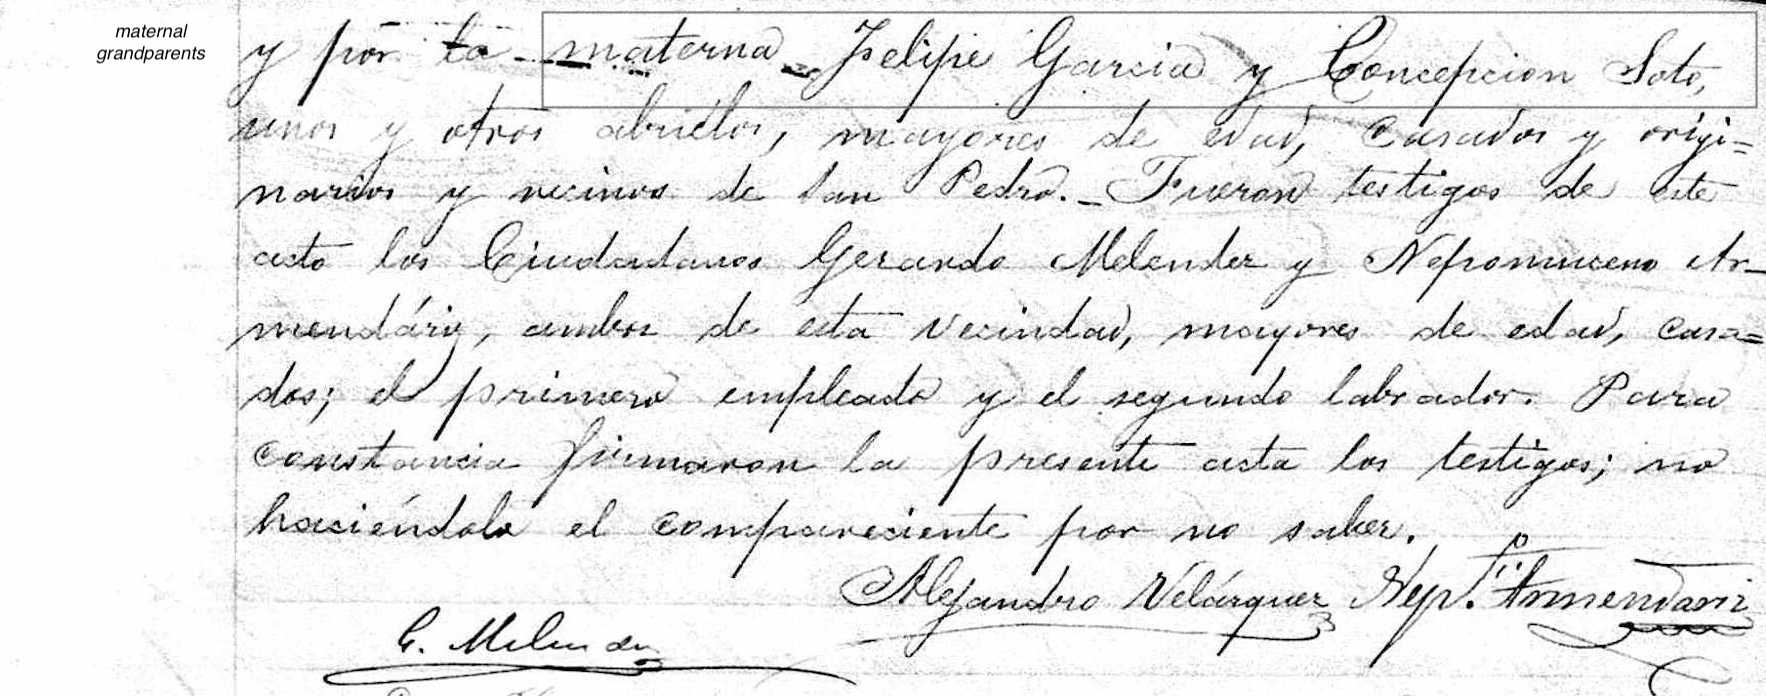 maternal
grandparents
y por la materna Felipe Garcia y Concepcion Soto,
unos y otros abuelos, mayores de edad, casados y origi=
narios y vecinos de San Pedro. - Fueron testigos de este
acto los Ciudadanos Gerardo Melendez y Nepomuceno Ar-
mendáriz, ambos de esta vecindad, mayores de edad, casa=
dos; el primero empleado y el segundo labrador. Para
constancia firmaron la presente acta los testigos; no
haciéndolo el compareciente por no saber.
Alejandro Velázquez Nep. Armendariz
G. Melendez